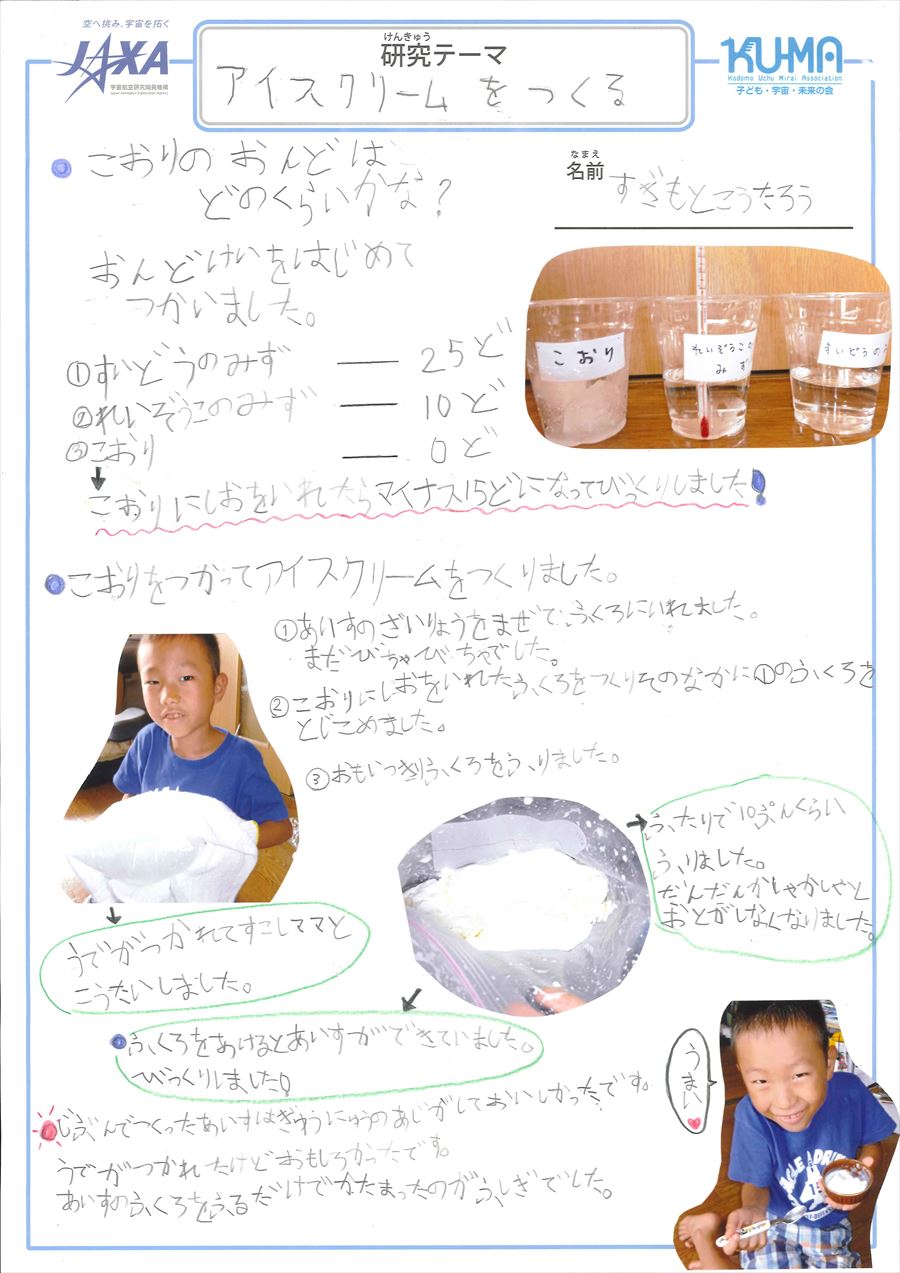 空へ挑み、宇宙を拓く
JAXA
宇宙航空研究開発機構
Japan Aerospace Exploration Agency
けんきゅう
研究テーマ
アイスクリームをつくる
KU-MA
Kodomo Uchu Mirai Association
子ども・宇宙・未来の会
こおりのおんどは
どのくらいかな?
なまえ
名前
すぎもとこうたろう
おんどけいをはじめて
つかいました。
①すいどうのみず ― 25ど
②れいぞうこのみず ― 10ど
③こおり ― 0ど
こおり
れいぞうこの
みず
すいどうの
こおりにしおをいれたらマイナス15どになってびっくりしました!
こおりをつかってアイスクリームをつくりました。
①あいすのざいりょうをまぜて、ふくろにいれました。
まだびちゃびちゃでした。
②こおりにしおをいれたふくろをつくりそのなかに①のふくろを
とじこめました。
③おもいっきりふくろをふりました。
ふたりで10ぷんくらい
ふりました。
だんだんかしゃかしゃと
おとがしなくなりました。
うでがつかれてすこしママと
こうたいしました。
ふくろをあけるとあいすができていました。
びっくりしました!
うまい
じぶんでつくったあいすはぎゅうにゅうのあじがしておいしかったです。
うでがつかれたけどおもしろかったです。
あいすのふくろをふるだけでかたまったのがふしぎでした。